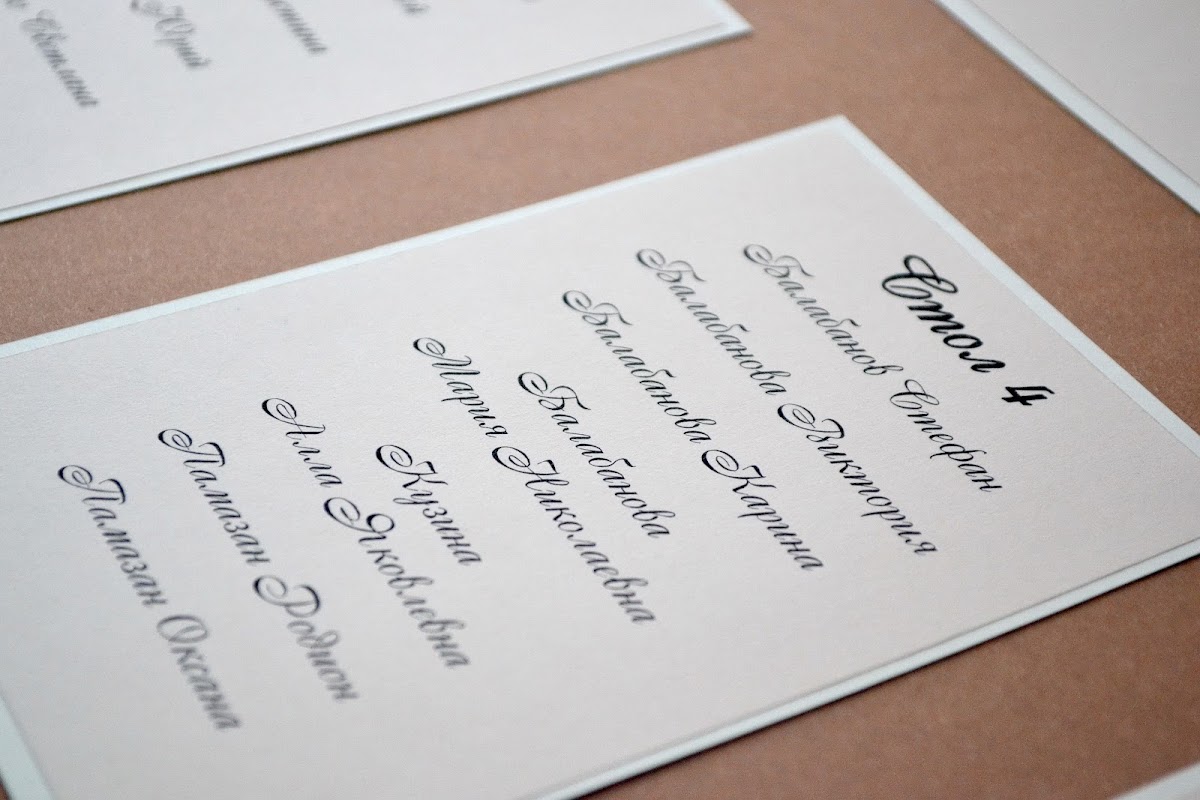 Светлана
Юрий
Стол 4
Балабанов Стефан
Балабанова Виктория
Балабанова Карина
Балабанова
Мария Николаевна
Кузина
Алла Яковлевна
Памазан Родион
Памазан Оксана